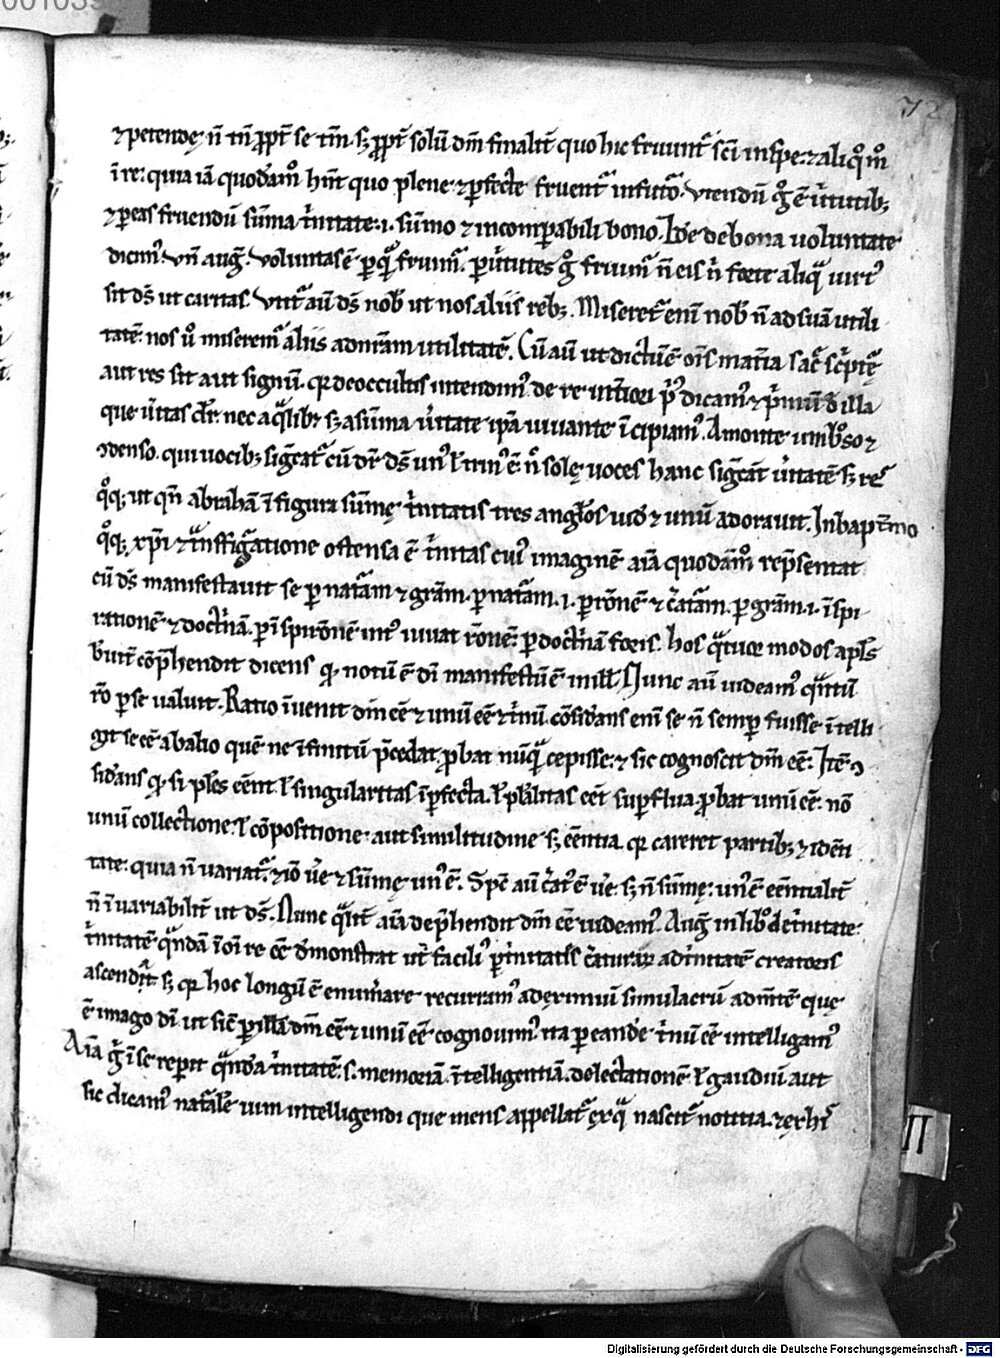 72
⁊ petendę n̄ tn̄ ꝓpt̄ se tm̄. sꝫ ꝓpt̄ solū dm̄ finalit̄ quo hic fruunt᷑ sc̄i in spe. ⁊ aliqͦ mͦ
ī re: quia iā quodāmͦ hn̄t quo plene ⁊ ꝑfecte fruent᷑ in futͦo. Vtendū gͦ ē ũtutibꝫ
⁊ ꝑ eas fruendū sūma t̍nitate .i. sūmo ⁊ incomꝑabili bono. de bona uoluntate
dicim᷒. vn̄ aug̃. voluntas ē ꝑ qͣ fruim᷒. ꝑ ũtutes gͦ fruim᷒ n̄ eis n̍ forte aliqͣ uirt᷒
sit ds̄ ut caritas. Vtit᷑ aū ds̄ nob̄ ut nos aliis rebꝫ. Miseret᷑ enī nob̄ n̄ ad suā utili
tatē. nos ũͦ miserem᷑ aliis ad nr̄am utilitatē. Cū aū ut dictū ē om̄s mat̄ia sac̄ sc̍ptę
aut res sit aut signū. qꝛ de occultis intendim᷒ de re int̄iori p̍᷒ dicam᷒ ⁊ p̍mū d̄ illa
que ũitas dr̄. nec a qͣlibꝫ sꝫ a sūma ũitate ip̄a iuuante īcipiam᷒. A monte umbͦso ⁊
ꝯdenso. qui uocibꝫ sig̃cat᷑ cū dr̄ ds̄ un᷒ ł trin᷒ ē n̄ solę uoces hanc sig̃cāt ũitatē sꝫ re᷒
qͦqꝫ. ut qn̄ abrahā ī figura sūmę t̍nitatis tres anglos uid̄ ⁊ unū adorauit. In bapt̄mo
qͦqꝫ xp̄i ⁊ tͣnsfigͣatione ostensa ē t̍nitas cui᷒ imaginē aīa quodāmͦ rep̄sentat
cū ds̄ manifestauit se ꝑ natͣam ⁊ grām. ꝑ natͣam .i. ꝑ rōnē ⁊ c̄atͣam. ꝑ grām .i. īspi
rationē ⁊ doct̍nā. ꝑ īspirōnē int᷒ iuuat rōnē: ꝑ doct̍nā foris. hos qͣtuor modos apłs
breuit̄ cōp̄hendit dicens qꝛ notū ē dī manifestū ē in illꝭ. Nunc aū uideam᷒ qͣntū
rō ꝑ se ualuit. Ratio īuenit dm̄ eē ⁊ unū eē ⁊ t̍nū. cōsid̄ans enī se n̄ semꝑ fuisse ītelli
git se eē ab alio quē ne īfinitū p̄cedat. ꝓbat nūqͣ cepisse: ⁊ sic cognoscit dm̄ eē: Itē ꝯ
sid̄ans qꝛ si pl̄es eēnt ł singularitas īꝑfecta. ł pl̄alitas eēt suꝑflua. ꝓbat unū eē: nō
unū collectione. ł cōpositione. aut similitudine sꝫ eēntia. qꝛ careret partibꝫ ⁊ idēti
tate: quia n̄ variat᷑. ⁊ iō ũe ⁊ sūmę un᷒ ē. Spēs aū c̄at᷒ ē ũe. sꝫ n̄ sūmę: un᷒ ē eēntialit̄
n̄ īuariabilit̄ ut ds̄. Nunc qͣlit̄ aīa dep̄hendit dm̄ eē uideam᷒. Aug̃ in libͦ de t̍nitate:
t̍nitatē qͣndā ī om̄i re eē d̄monstrat ut̄ facili᷒ ꝑ t̍nitatē c̄aturaꝝ ad t̍nitatē creatoris
ascendat᷑. sꝫ qꝛ hoc longū ē enum̄are recurram᷒ ad eximiū simulacrū ad mtē que
ē imago dī ut sic̄ ꝑ illā dm̄ eē ⁊ unū eē cognouim᷒ ita ꝑ eandē t̍nū eē intelligam᷒
Aīa gͦ ī se repit qͣnda t̍nitatē. s. memoriā. ītelligentiā. delectationē ł gaudiū aut
sic dicam᷒ natͣalē uim intelligendi que mens appellat᷑. ex qͣ nascit᷑ notitia. ⁊ ex hi᷒
II
Digitalisierung gefördert durch die Deutsche Forschungsgemeinschaft - DFG